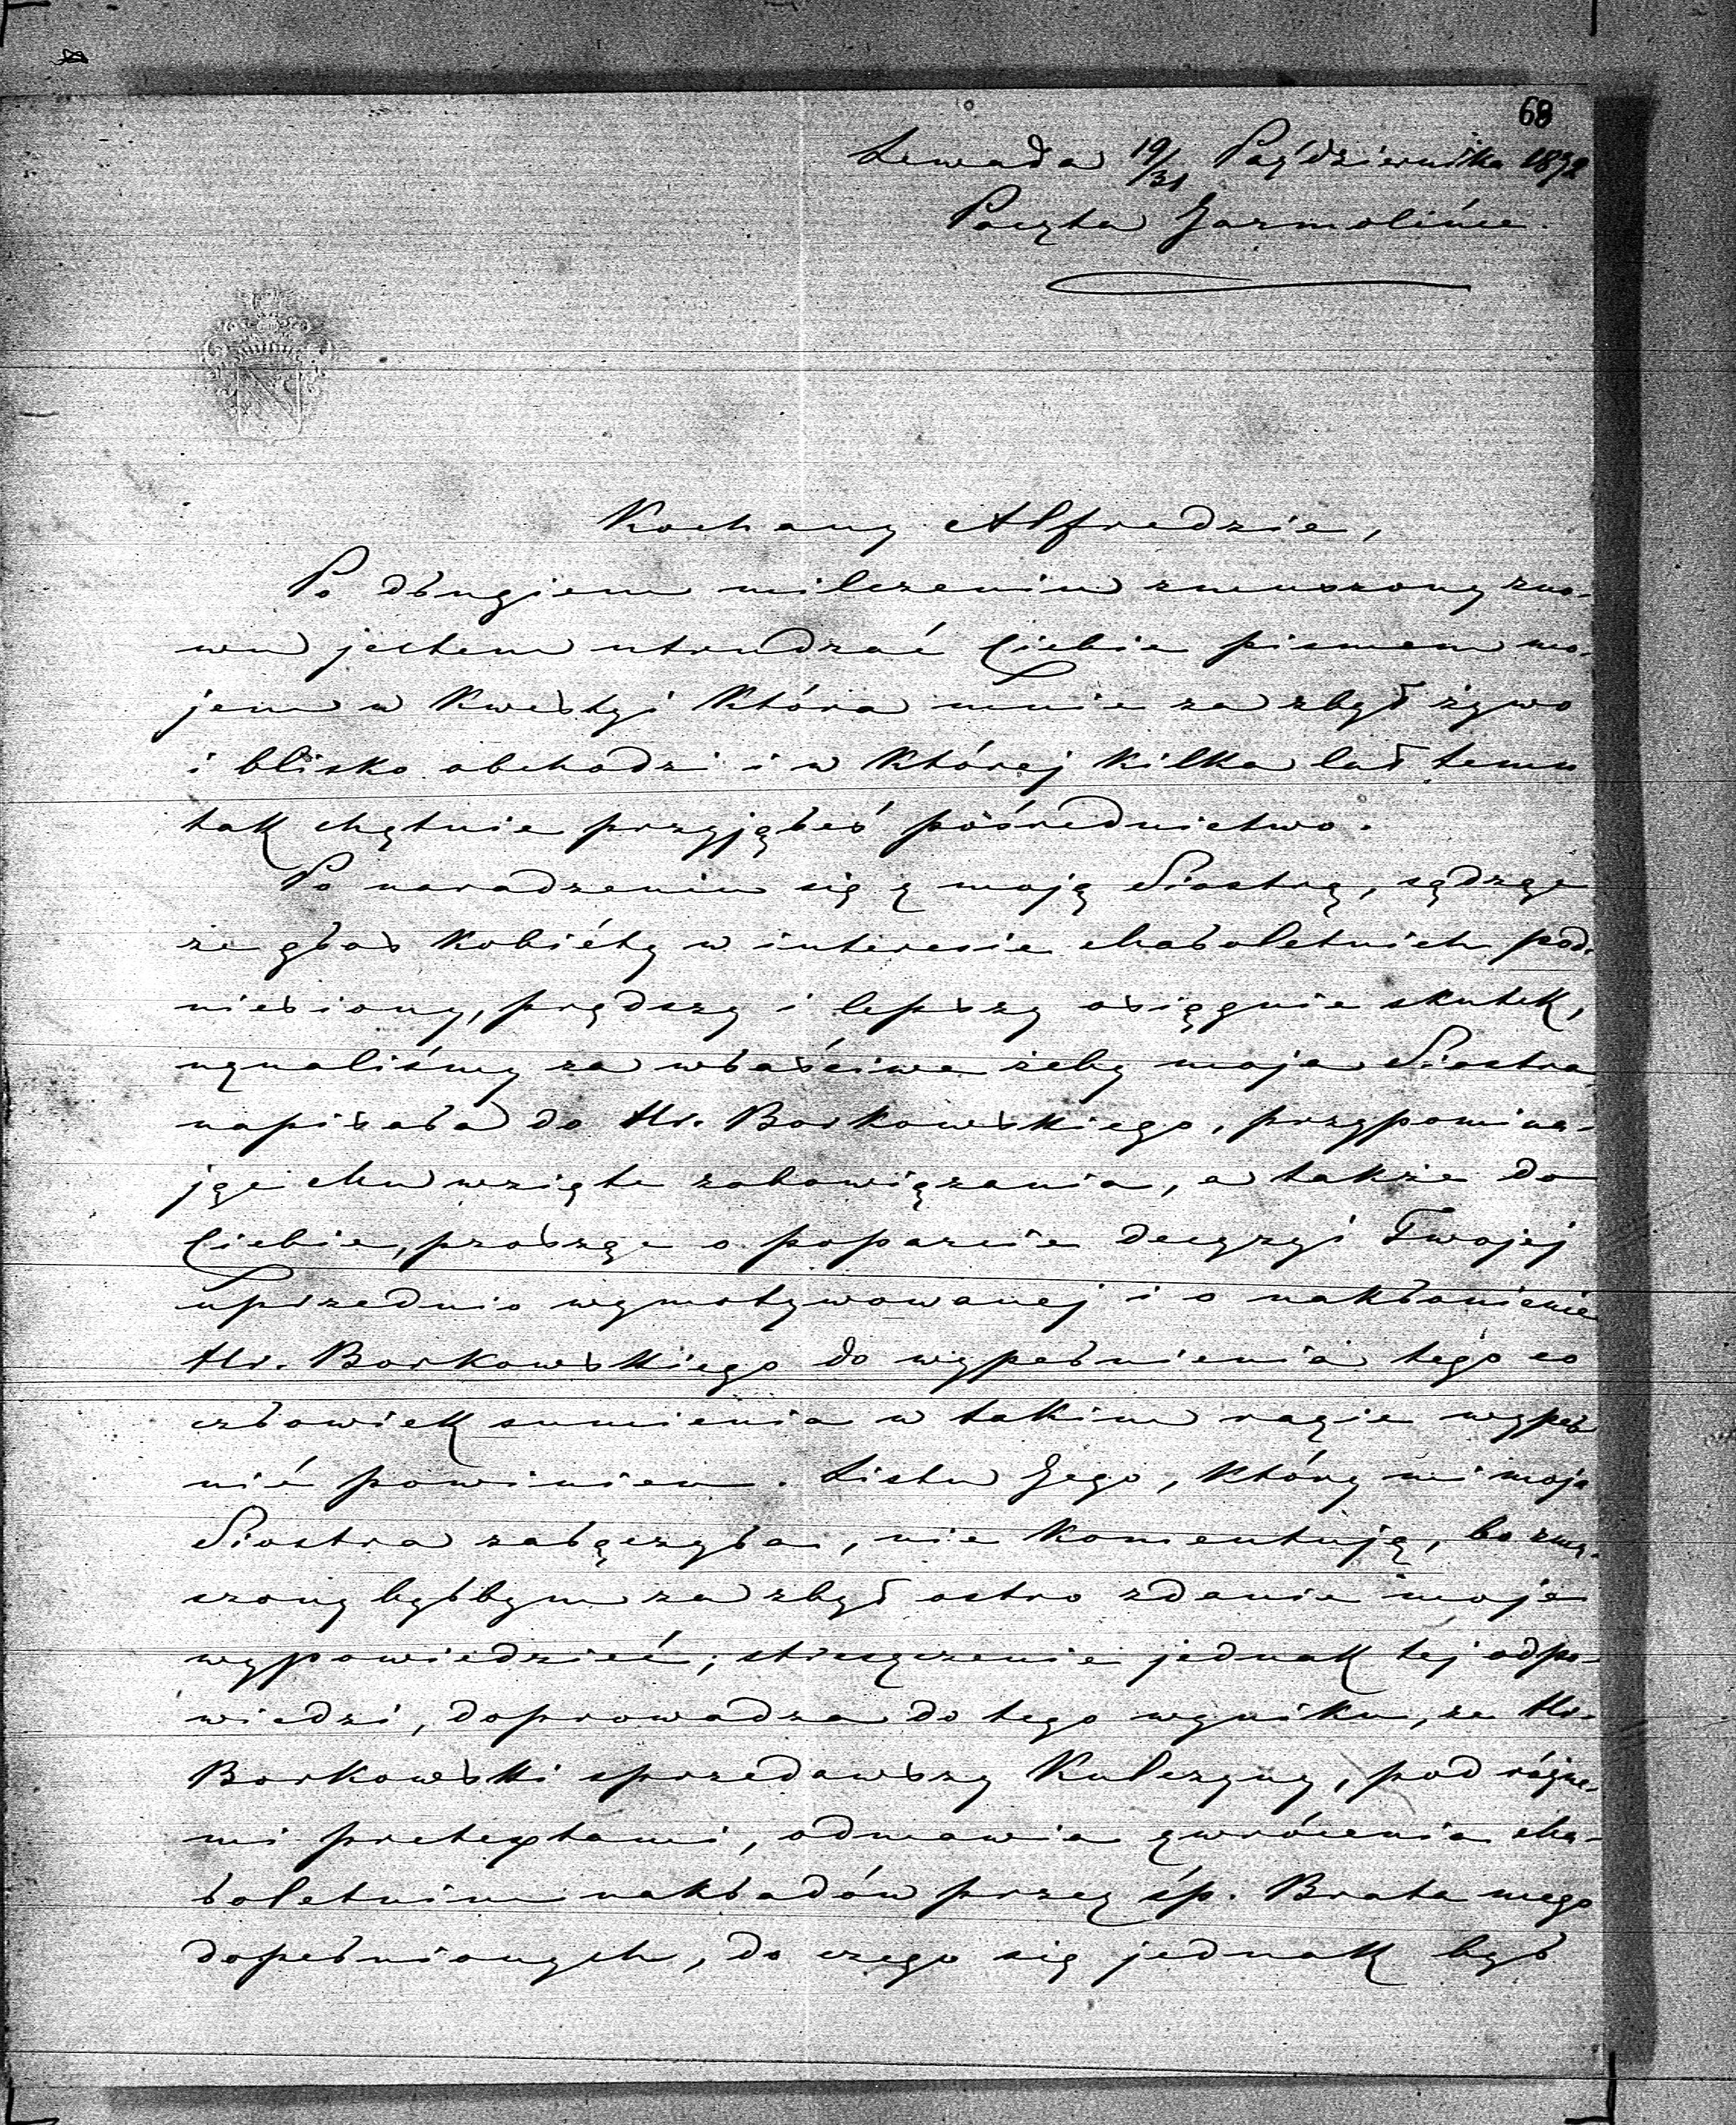 68
Lewada 19/31 Października 1892
Poczta Jarmolińce.
Kochany Alfredzie,
Po długiem milczeniu zmuszony zno-
wu jestem utrudzać Ciebie pismem mo-
jem w kwestyi która mnie za zbyt żywo
i blisko obchodzi i w której kilka lat temu
tak chętnie przyjąłeś pośrednictwo.
Po naradzeniu się z moją Siostrą, sądząc
że głos kobiéty w interesie Małoletnich pod-
niesiony, prędszy i lepszy osiągnie skutek,
uznaliśmy za właściwe żeby moja Siostra
napisała do Hr. Borkowskiego, przypomina-
jąc Mu wzięte zobowiązania, a także do
Ciebie, prosząc o poparcie decyzyi Twojej
uprzednio wymotywowanej i o nakłonienie
Hr. Borkowskiego do wypełnienia tego co
człowiek sumienia w takim razie wypeł
nić powinien. Listu Jego, który mi moja
Siostra załączyła, nie komentuję, bo zmu-
szony byłbym za zbyt ostro zdanie moje
wypowiedzieć; streszczenie jednak tej odpo-
wiedzi, doprowadza do tego wyniku, że Hr.
Borkowski sprzedawszy Kulczyny, pod różne-
mi pretextami, odmawia zwrócenia Ma-
łoletnim nakładów przez śp. Brata mego
dopełnionych, do czego się jednak był